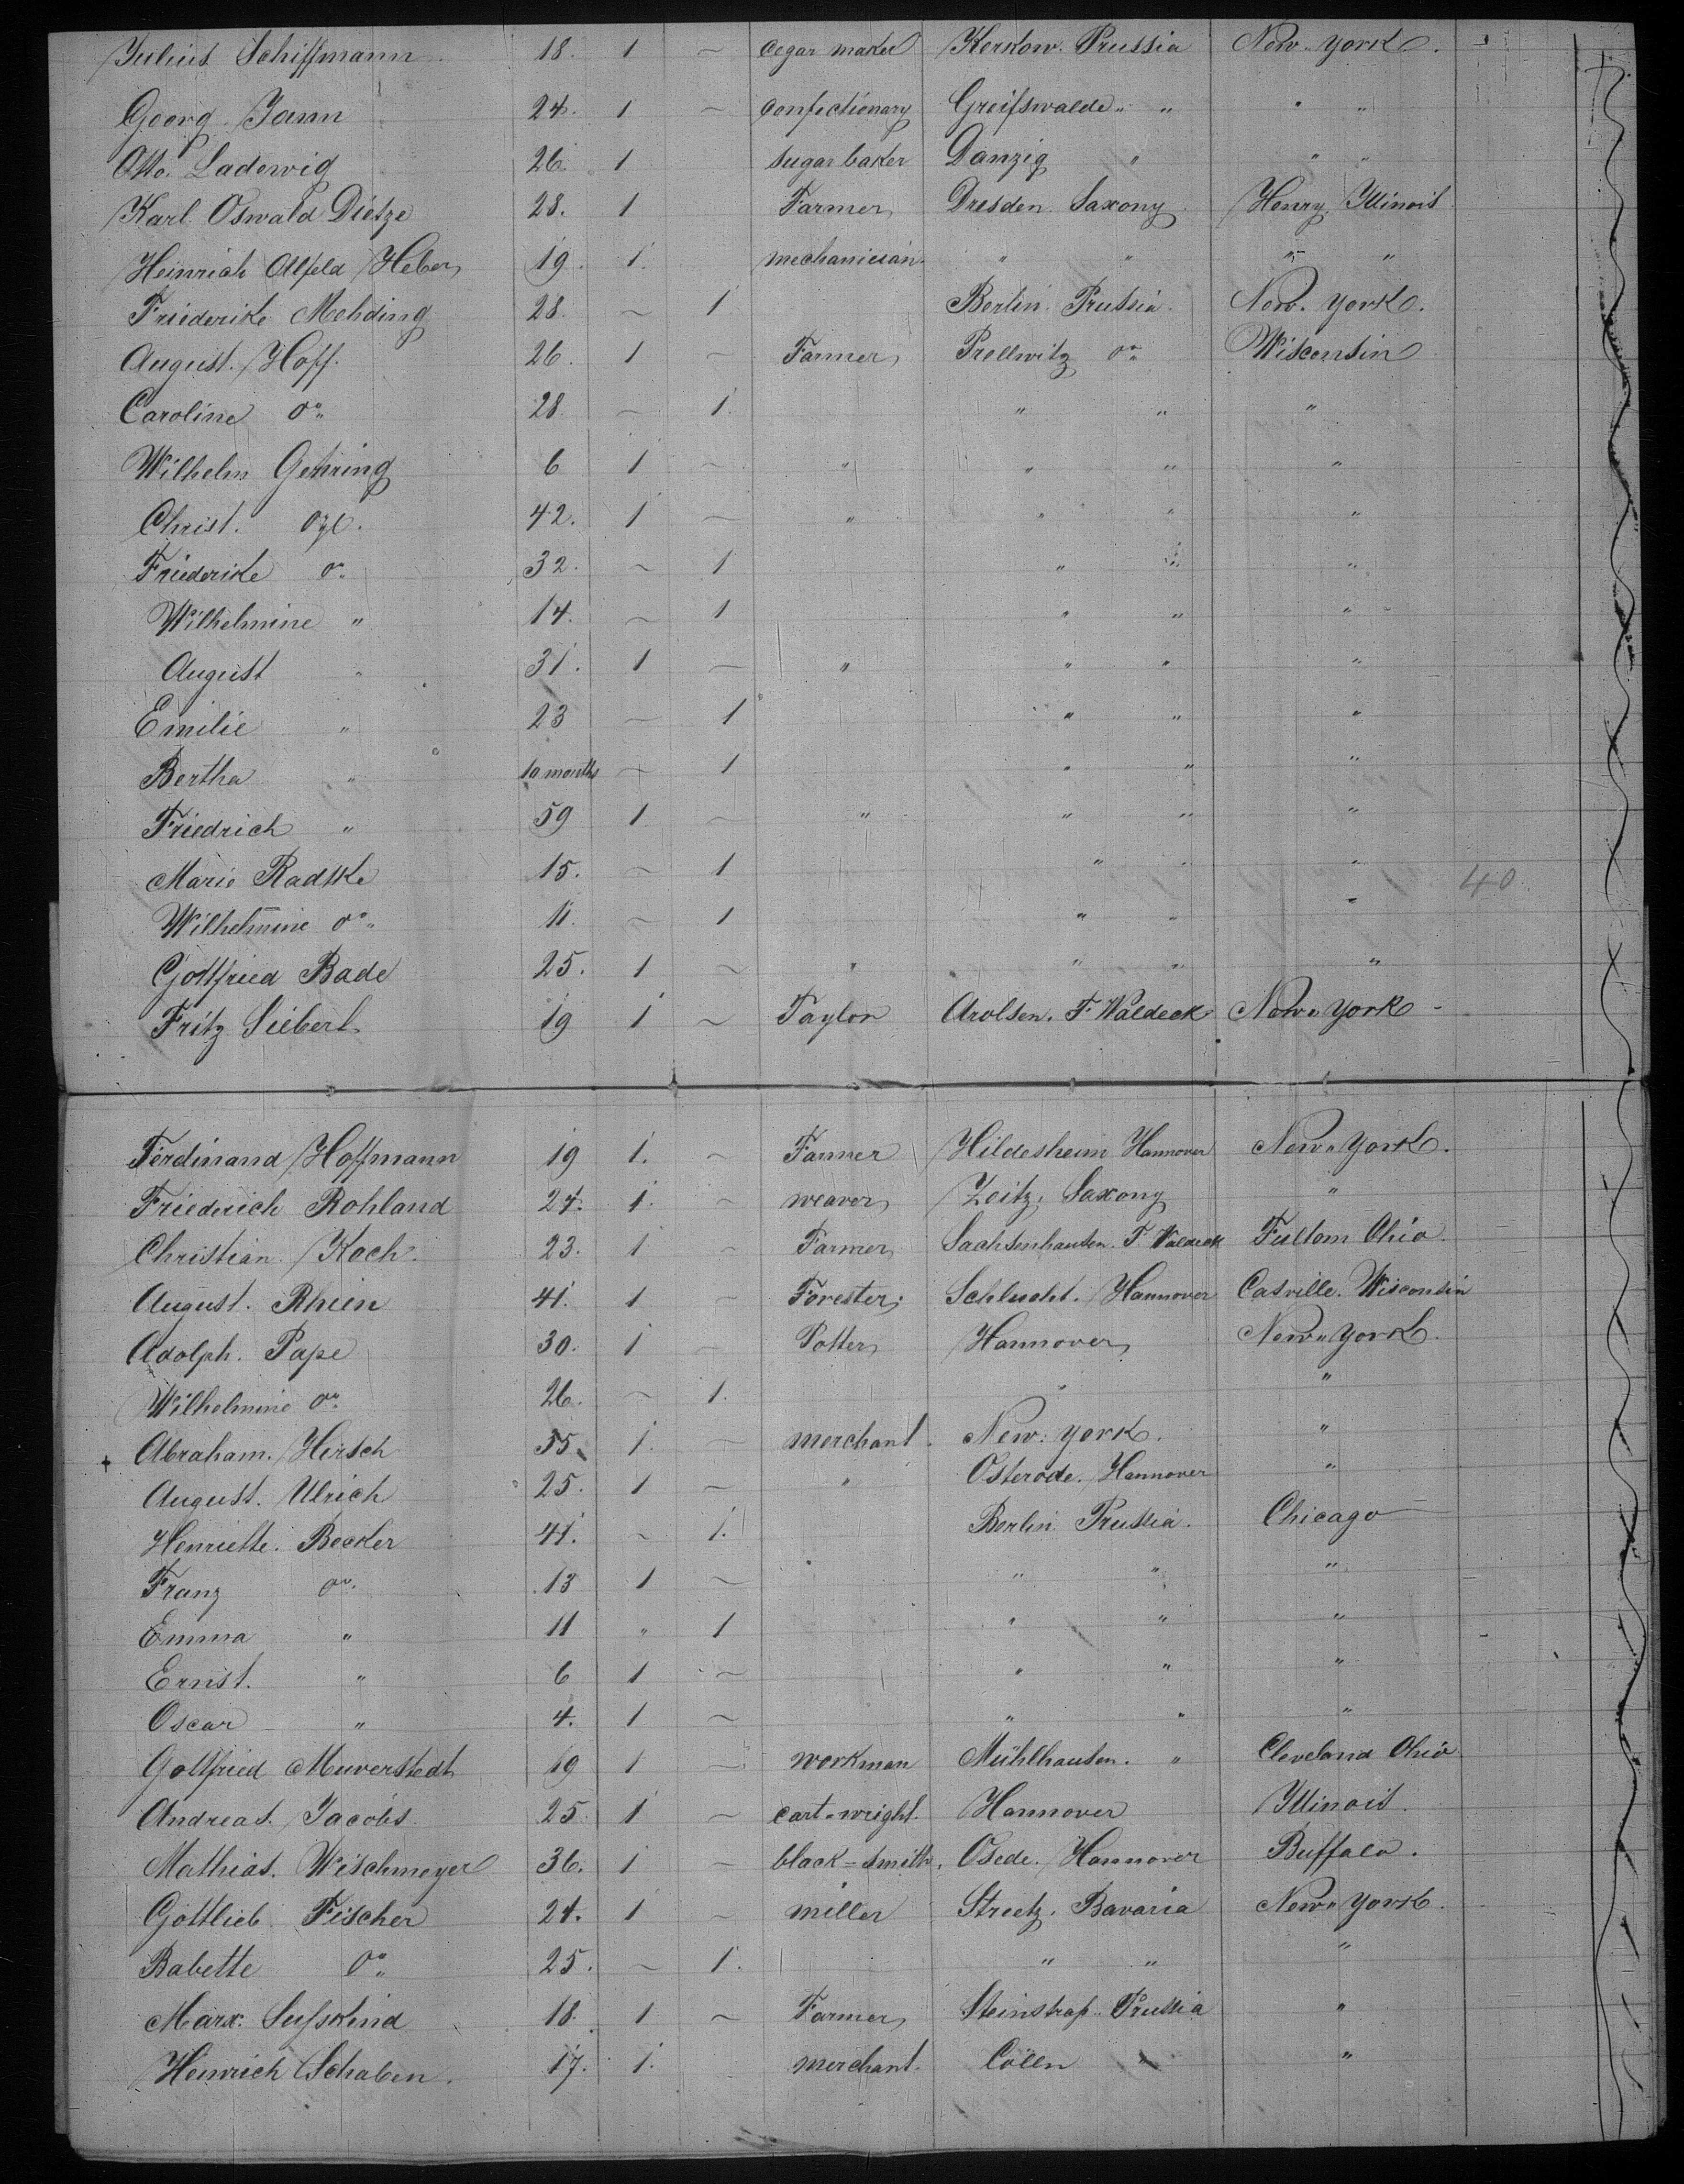 Julius Schiffmann. 18. 1 ~ Cegar maker Kerkow. Prussia New York.
Georg Jann 24. 1 ~ confectionary Greifswalde " " " "
Otto Ladewig 26. 1 sugar baker Danzig " " "
Karl Oswald Dietze 28. 1 Farmer Dresden Saxony Henry Illinois
Heinrich Alfeld Heber 19. 1. mechanician " " " "
Friederike Mehding 28. ~ 1 Berlin Prussia. New York.
August. Hoff. 26. 1 ~ Farmer Prellwitz do Wisconsin
Caroline do 28. ~ 1. " " "
Wilhelm Gehring 6 1 ~ " " " "
Christ. 42. 1 ~ " " " "
Friederike do 32. ~ 1 " " "
Wilhelmine " 14. ~ 1 " " "
August " 31. 1 ~ " " " "
Emilie " 23 ~ 1 " " "
Bertha " 10 months ~ 1 " " "
Friedrich " 59 1 ~ " " " "
Marie Radtke 15. ~ 1 " " " 40
Wilhelmine do 11. ~ 1 " " "
Gottfried Bade 25. 1 ~ " " " "
Fritz Siebert 19 1 ~ Taylor Arolsen. F. Waldeck New York
Ferdinand Hoffmann 19 1. ~ Farmer Hildesheim Hannover New York.
Friederich Rohland 24. 1. ~ weaver Zeitz. Saxony "
Christian. Koch. 23. 1 ~ Farmer Sachsenhausen. F. Waldeck Fultom Ohio.
August. Rhein 41. 1 ~ Forester. Schlucht. Hannover Casville. Wisconsin
Adolph. Pape 30. 1 ~ Potter Hannover New York.
Wilhelmine do 26. ~ 1. " "
Abraham. Hirsch 55. 1. ~ merchant. New. York. "
August. Ulrich 25. 1 ~ " Osterode. Hannover "
Henriette. Becker 41. ~ 1. Berlin Prussia. Chicago
Franz do 13 1 ~ " " "
Emma " 11 " 1 " " "
Ernst. " 6 1 ~ " " "
Oscar " 4. 1 ~ " " "
Gottfried Muverstedt 19 1 ~ workman Mühlhausen. " Cleveland Ohio
Andreas. Jacobs 25 1 ~ cart-wright. Hannover Illinois.
Mathias. Wischmeyer 36. 1 ~ black=smith. Osede. Hannover Buffalo.
Gottlieb. Fischer 24. 1 ~ miller Streetz. Bavaria New York.
Babette do 25. ~ 1. " " "
Marx. Susskind 18. 1 ~ Farmer Prussia "
Heinrich Schaben. 17. 1. merchant. Cölln " "